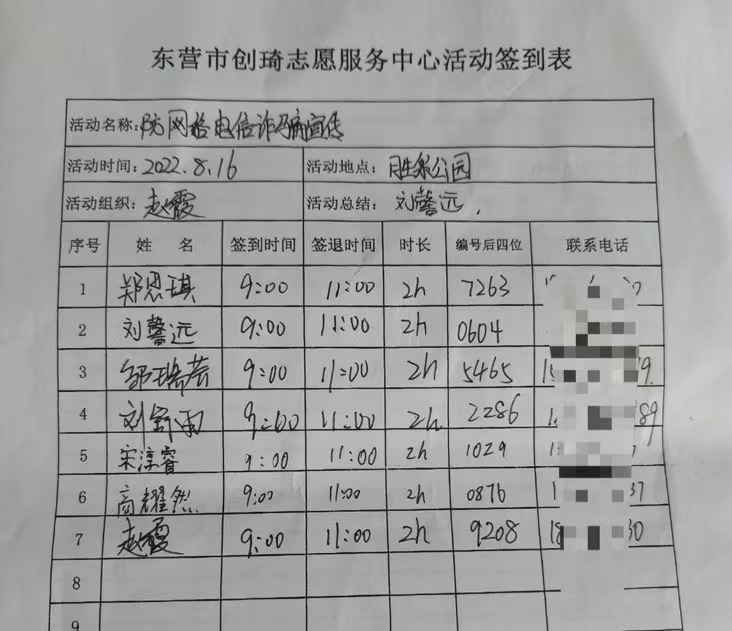 东营市创琦志愿服务中心活动签到表
活动名称:防网格电信诈骗宣传
活动时间:2022.8.16 活动地点:胜泉公园
活动组织:赵霞 活动总结:刘馨远.
序号 姓 名 签到时间 签退时间 时长 编号后四位 联系电话
1 郑思琪 9:00 11:00 2h 7263
2 刘馨远 9:00 11:00 2h 0604
3 邹瑞芸 9:00 11:00 2h 5465 15 79
4 刘舒雨 9:00 11:00 2h 2286 1 89
5 宋淳睿 9:00 11:00 2h 1029 1
6 商耀然 9:00 11:00 2h 0876 1 37
7 赵霞 9:00 11:00 2h 9208 18 30
8
9